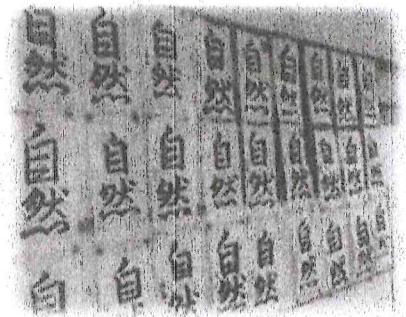 自然 自然 自然 自然 自然 自然 自然 自然 自然
自然 自然 自然 自然 自然 自然 自然 自然 自然
自 自 自然 自然 自然 自然 自然 自然 自然